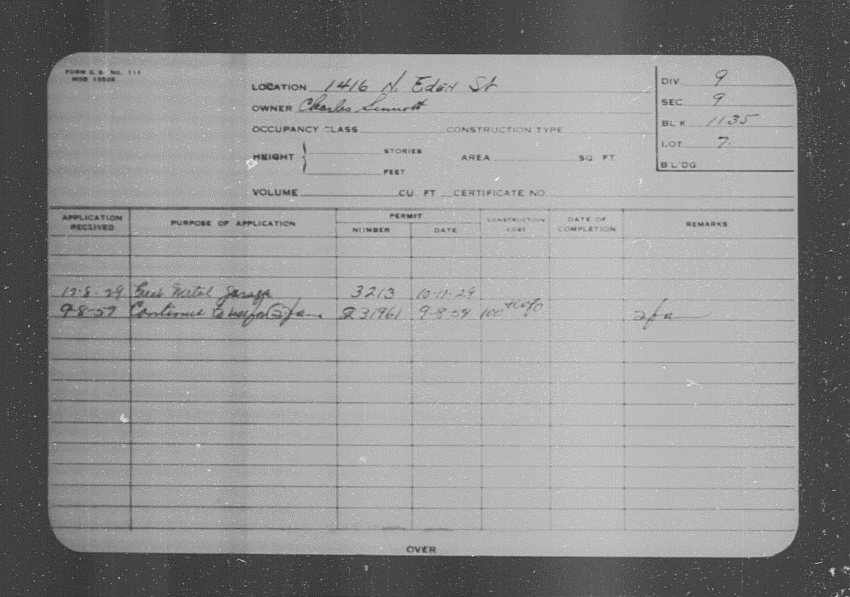 FORM G. B. NO. 111
LOCATION 1416 N. Eden St
OWNER Charles Sinnott
OCCUPANCY CLASS CONSTRUCTION TYPE
HEIGHT { STORIES AREA SQ. FT
FEET
VOLUME CU FT CERTIFICATE NO
DIV. 9
SEC. 9
BL'K 1135
LOT 7.
B'LD'G
APPLICATION RECEIVED PURPOSE OF APPLICATION PERMIT NUMBER DATE CONSTRUCTION COST DATE OF COMPLETION REMARKS
29 Erect Metal Garage 3213 10-11-29
9-8-59 Continue to use for 2 fam 31961 9-8-59 100 2 fa
OVER